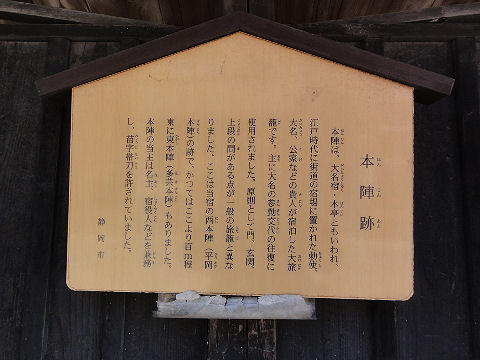 本陣跡
本陣は、大名宿・本亭ともいわれ、
江戸時代に街道の宿場に置かれた勅使、
大名、公家などの貴人が宿泊した大旅
籠です。主に大名の参勤交代の往復に
使用されました。原則として門、玄関、
上段の間がある点が一般の旅籠と異な
りました。ここは当宿の西本陣（平岡
本陣）の跡で、かつてはここより百m程
東に東本陣（多芸本陣）もありました。
本陣の当主は名主、宿役人などを兼務
し、苗字帯刀を許されていました。
静岡市